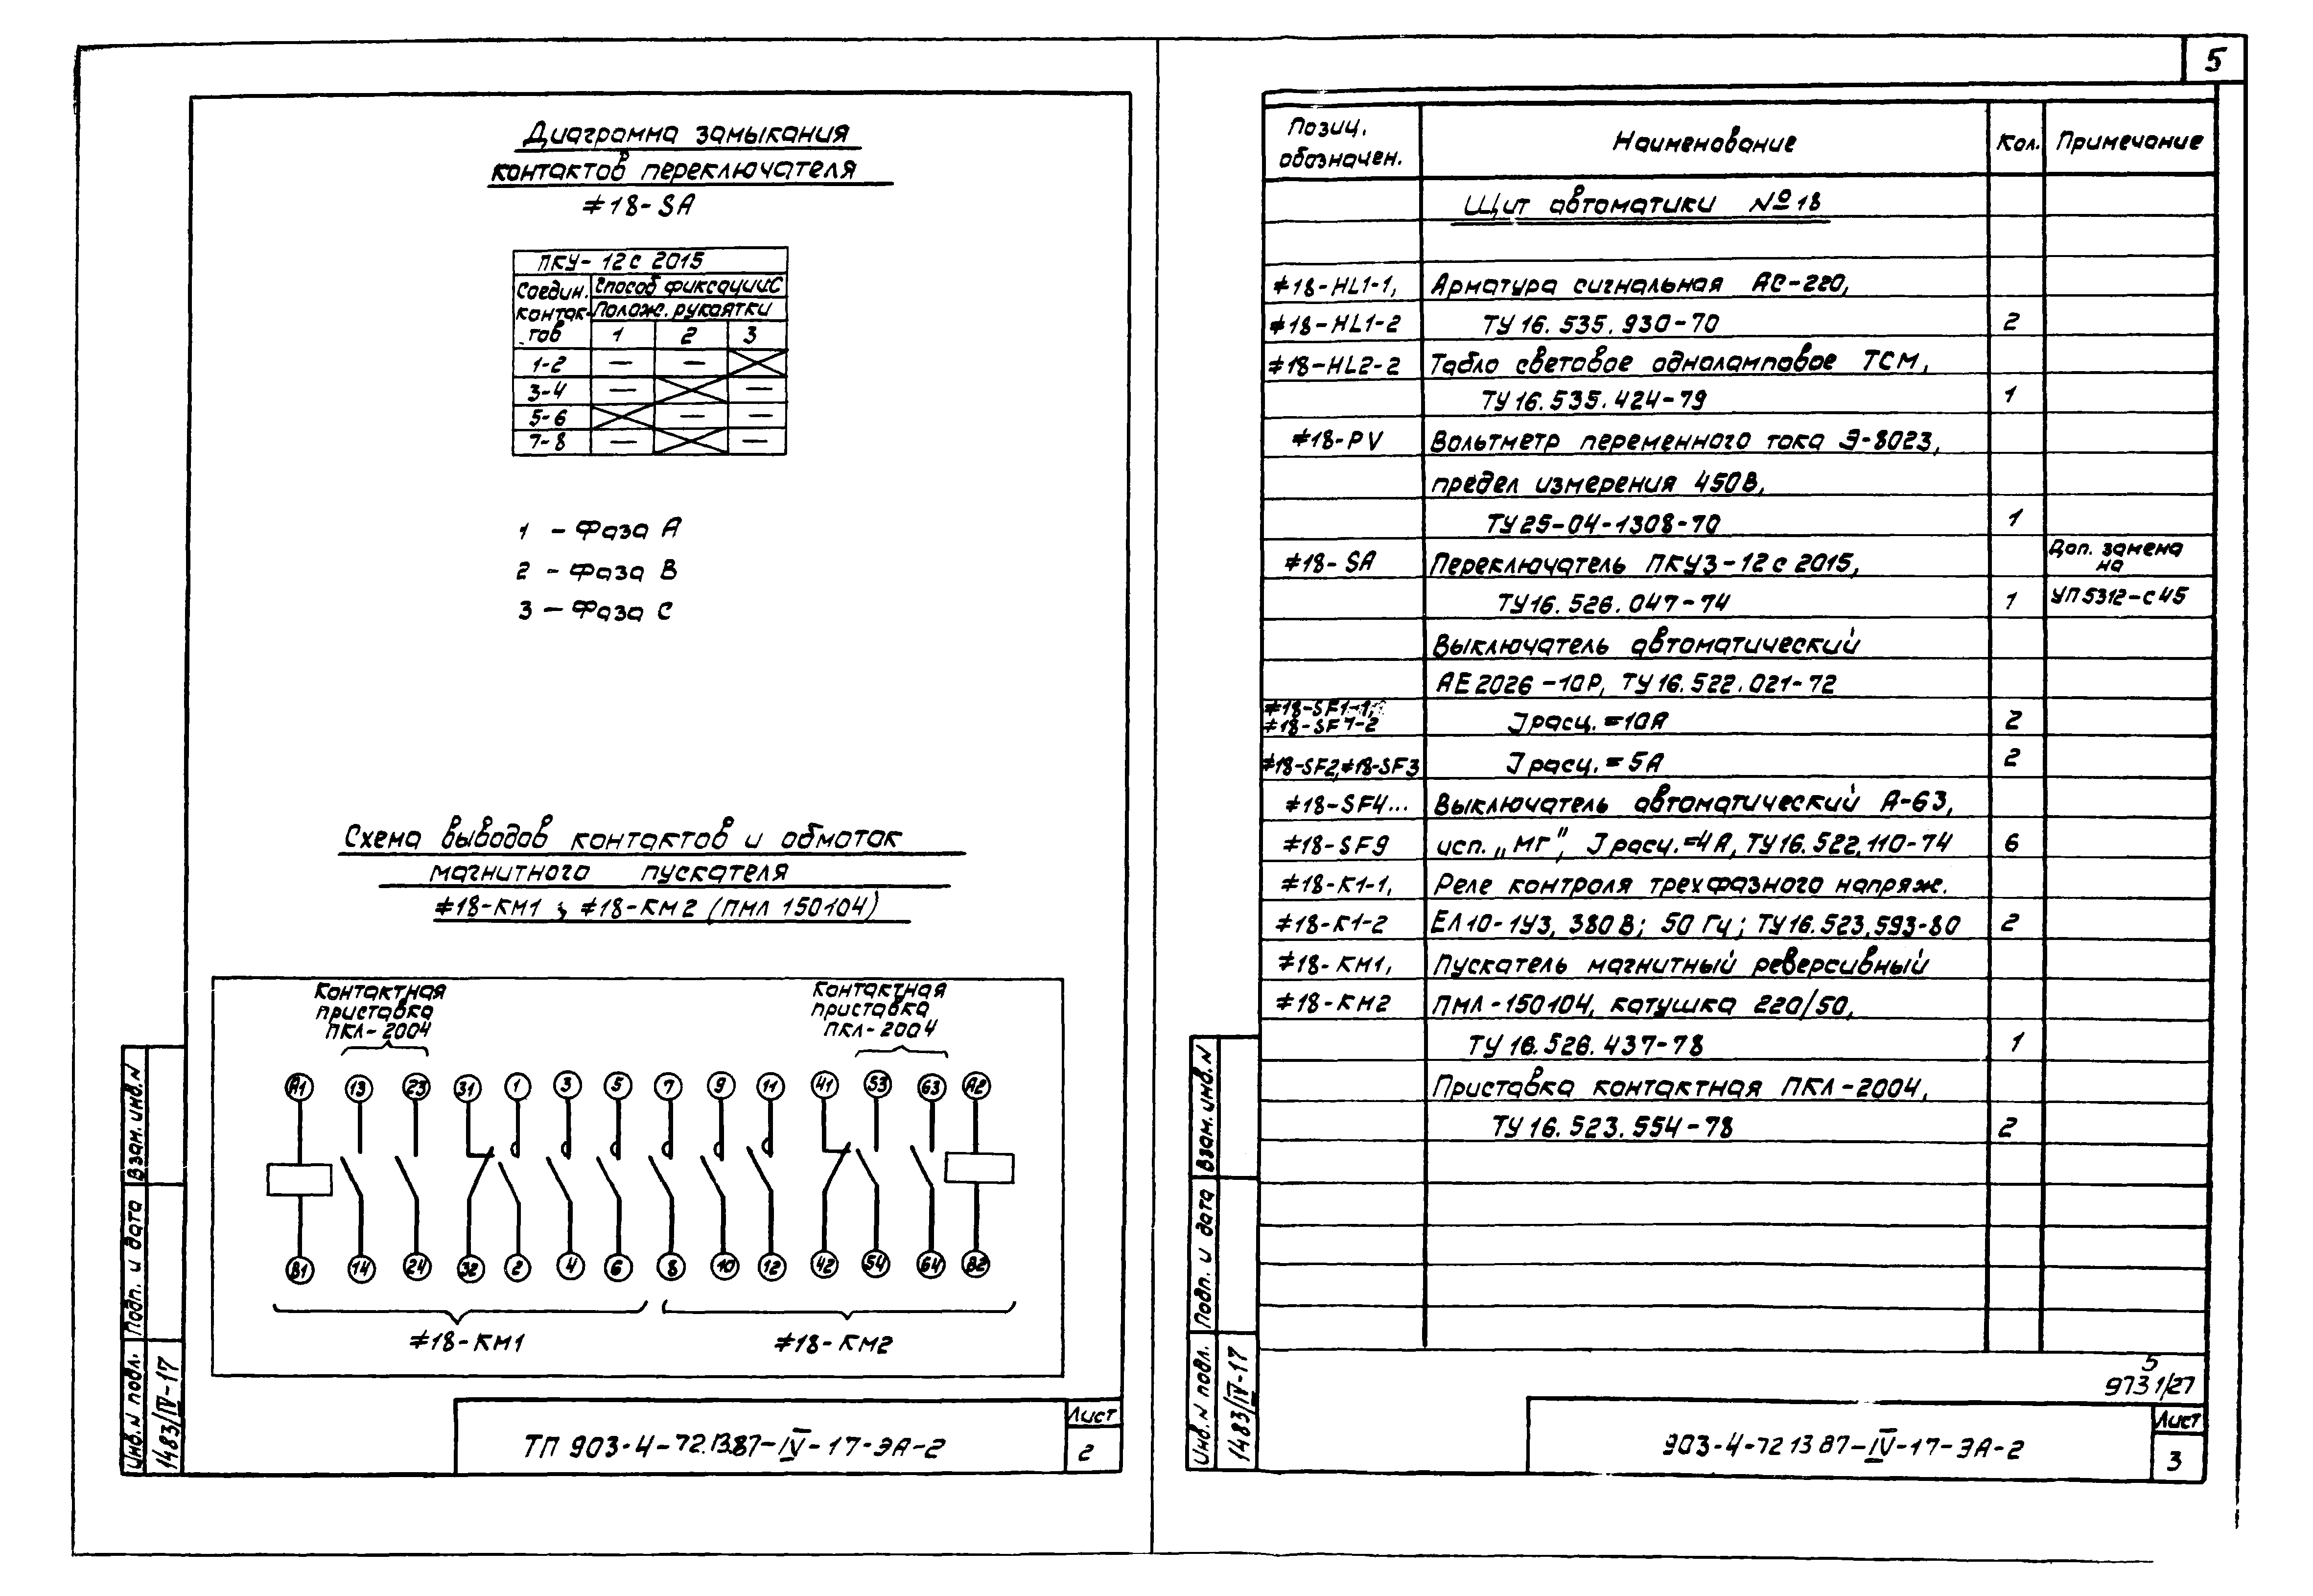 5
Диаграмма замыкания
контактов переключателя
≠18-SA
ПКУ-12с 2015
Соедин. контактов | Способ фиксации:С
Полож. рукоятки
1 2 3
1-2 — — ╳
3-4 — ╳ —
5-6 ╳ — —
7-8 — ╳ —
1 - Фаза А
2 - Фаза В
3 - Фаза С
Схема выводов контактов и обмоток
магнитного пускателя
≠18-КМ1 ; ≠18-КМ2 (ПМЛ 150104)
Контактная
приставка
ПКЛ-2004
Контактная
приставка
ПКЛ-2004
А1 13 23 31 1 3 5 7 9 11 41 53 63 А2
В1 14 24 32 2 4 6 8 10 12 42 54 64 В2
≠18-КМ1 ≠18-КМ2
Взам. инв. N
Подп. и дата
Инв. N подл.
1483/IV-17
ТП 903-4-72.13.87-IV-17-ЭА-2
Лист
2
Позиц. обозначен. | Наименование | Кол. | Примечание
Щит автоматики №18
≠18-HL1-1, Арматура сигнальная АС-220,
≠18-HL1-2 ТУ 16.535.930-70 2
≠18-HL2-2 Табло световое одноламповое ТСМ,
ТУ 16.535.424-79 1
≠18-PV Вольтметр переменного тока Э-8023,
предел измерения 450В,
ТУ25-04-1308-70 1
≠18-SA Переключатель ПКУ3-12с 2015, Доп. замена на
ТУ16.526.047-74 1 УП5312-с45
Выключатель автоматический
АЕ2026-10Р, ТУ16.522.021-72
≠18-SF1-1,
≠18-SF1-2 Iрасц.=10А 2
≠18-SF2,≠18-SF3 Iрасц.=5А 2
≠18-SF4... Выключатель автоматический А-63,
≠18-SF9 исп. „МГ", Iрасц.=4А, ТУ16.522.110-74 6
≠18-К1-1, Реле контроля трехфазного напряж.
≠18-К1-2 ЕЛ10-1У3, 380В; 50 Гц; ТУ16.523.593-80 2
≠18-КМ1, Пускатель магнитный реверсивный
≠18-КМ2 ПМЛ-150104, катушка 220/50,
ТУ 16.526.437-78 1
Приставка контактная ПКЛ-2004,
ТУ 16.523.554-78 2
5
9731/27
Взам. инв. N
Подп. и дата
Инв. N подл.
1483/IV-17
903-4-72 13 87-IV-17-ЭА-2
Лист
3